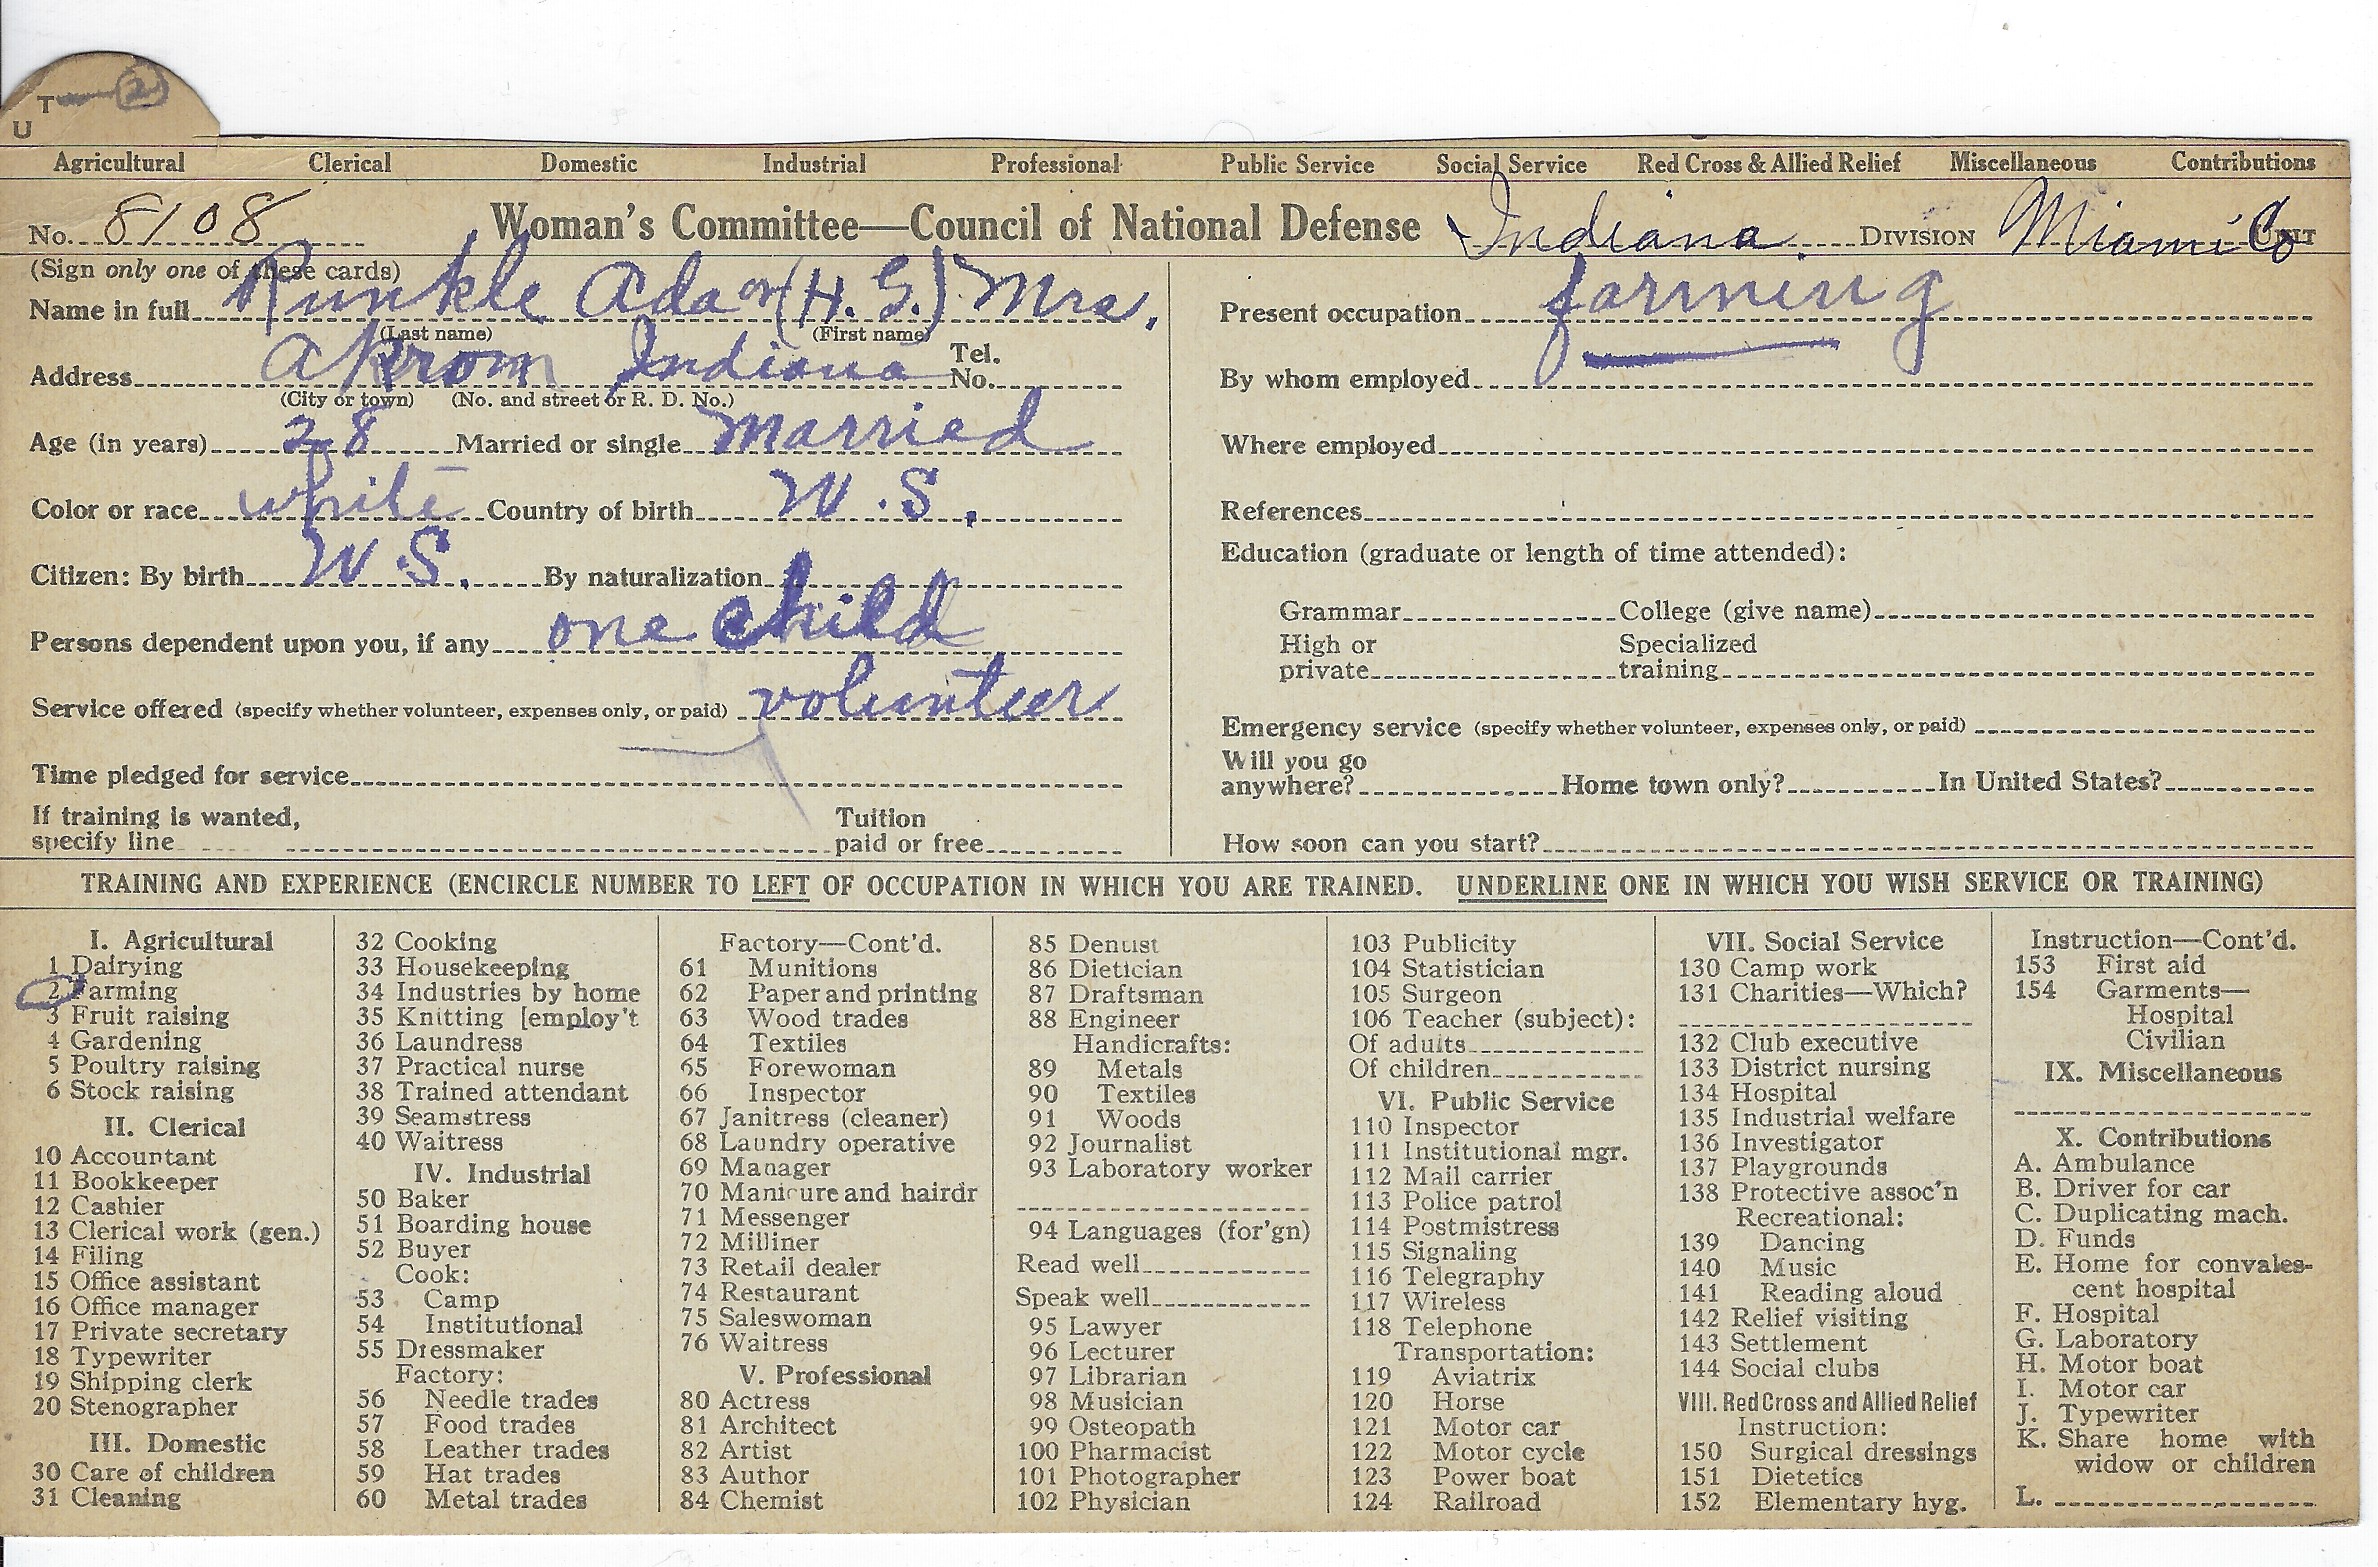 T (2)
U
Agricultural Clerical Domestic Industrial Professional Public Service Social Service Red Cross & Allied Relief Miscellaneous Contributions
No. 8108 Woman's Committee—Council of National Defense Indiana DIVISION Miami Co UNIT
(Sign only one of these cards)
Name in full Runkle Ada or (H. G.) Mrs.
(Last name) (First name)
Address Akron Indiana Tel. No.
(City or town) (No. and street or R. D. No.)
Age (in years) 28 Married or single married
Color or race white Country of birth U.S.
Citizen: By birth U.S. By naturalization
Persons dependent upon you, if any one child
Service offered (specify whether volunteer, expenses only, or paid) volunteer
Time pledged for service
If training is wanted, specify line Tuition paid or free
Present occupation farming
By whom employed
Where employed
References
Education (graduate or length of time attended):
Grammar College (give name)
High or private Specialized training
Emergency service (specify whether volunteer, expenses only, or paid)
Will you go anywhere? Home town only? In United States?
How soon can you start?
TRAINING AND EXPERIENCE (ENCIRCLE NUMBER TO LEFT OF OCCUPATION IN WHICH YOU ARE TRAINED. UNDERLINE ONE IN WHICH YOU WISH SERVICE OR TRAINING)
I. Agricultural
1 Dairying
2 Farming
3 Fruit raising
4 Gardening
5 Poultry raising
6 Stock raising
II. Clerical
10 Accountant
11 Bookkeeper
12 Cashier
13 Clerical work (gen.)
14 Filing
15 Office assistant
16 Office manager
17 Private secretary
18 Typewriter
19 Shipping clerk
20 Stenographer
III. Domestic
30 Care of children
31 Cleaning
32 Cooking
33 Housekeeping
34 Industries by home
35 Knitting [employ't
36 Laundress
37 Practical nurse
38 Trained attendant
39 Seamstress
40 Waitress
IV. Industrial
50 Baker
51 Boarding house
52 Buyer
Cook:
53 Camp
54 Institutional
55 Dressmaker
Factory:
56 Needle trades
57 Food trades
58 Leather trades
59 Hat trades
60 Metal trades
Factory—Cont'd.
61 Munitions
62 Paper and printing
63 Wood trades
64 Textiles
65 Forewoman
66 Inspector
67 Janitress (cleaner)
68 Laundry operative
69 Manager
70 Manicure and hairdr
71 Messenger
72 Milliner
73 Retail dealer
74 Restaurant
75 Saleswoman
76 Waitress
V. Professional
80 Actress
81 Architect
82 Artist
83 Author
84 Chemist
85 Dentist
86 Dietician
87 Draftsman
88 Engineer
Handicrafts:
89 Metals
90 Textiles
91 Woods
92 Journalist
93 Laboratory worker
94 Languages (for'gn)
Read well
Speak well
95 Lawyer
96 Lecturer
97 Librarian
98 Musician
99 Osteopath
100 Pharmacist
101 Photographer
102 Physician
103 Publicity
104 Statistician
105 Surgeon
106 Teacher (subject):
Of adults
Of children
VI. Public Service
110 Inspector
111 Institutional mgr.
112 Mail carrier
113 Police patrol
114 Postmistress
115 Signaling
116 Telegraphy
117 Wireless
118 Telephone
Transportation:
119 Aviatrix
120 Horse
121 Motor car
122 Motor cycle
123 Power boat
124 Railroad
VII. Social Service
130 Camp work
131 Charities—Which?
132 Club executive
133 District nursing
134 Hospital
135 Industrial welfare
136 Investigator
137 Playgrounds
138 Protective assoc'n
Recreational:
139 Dancing
140 Music
141 Reading aloud
142 Relief visiting
143 Settlement
144 Social clubs
VIII. Red Cross and Allied Relief
Instruction:
150 Surgical dressings
151 Dietetics
152 Elementary hyg.
Instruction—Cont'd.
153 First aid
154 Garments—
Hospital
Civilian
IX. Miscellaneous
X. Contributions
A. Ambulance
B. Driver for car
C. Duplicating mach.
D. Funds
E. Home for convales-
cent hospital
F. Hospital
G. Laboratory
H. Motor boat
I. Motor car
J. Typewriter
K. Share home with
widow or children
L.